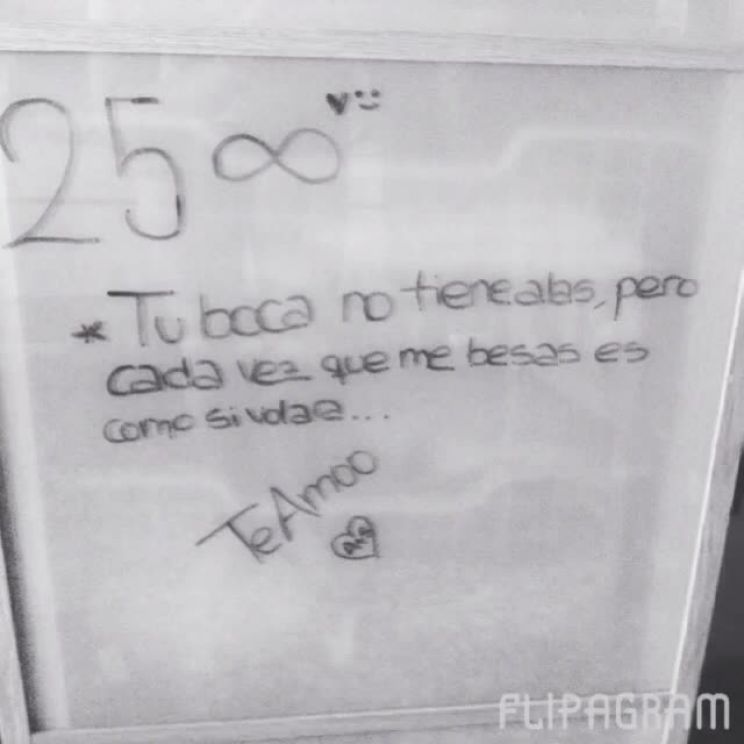 25 ∞ ♥ :)
* Tu boca no tiene alas, pero
cada vez que me besas es
como si volae...
Te Amoo
FLIPAGRAM